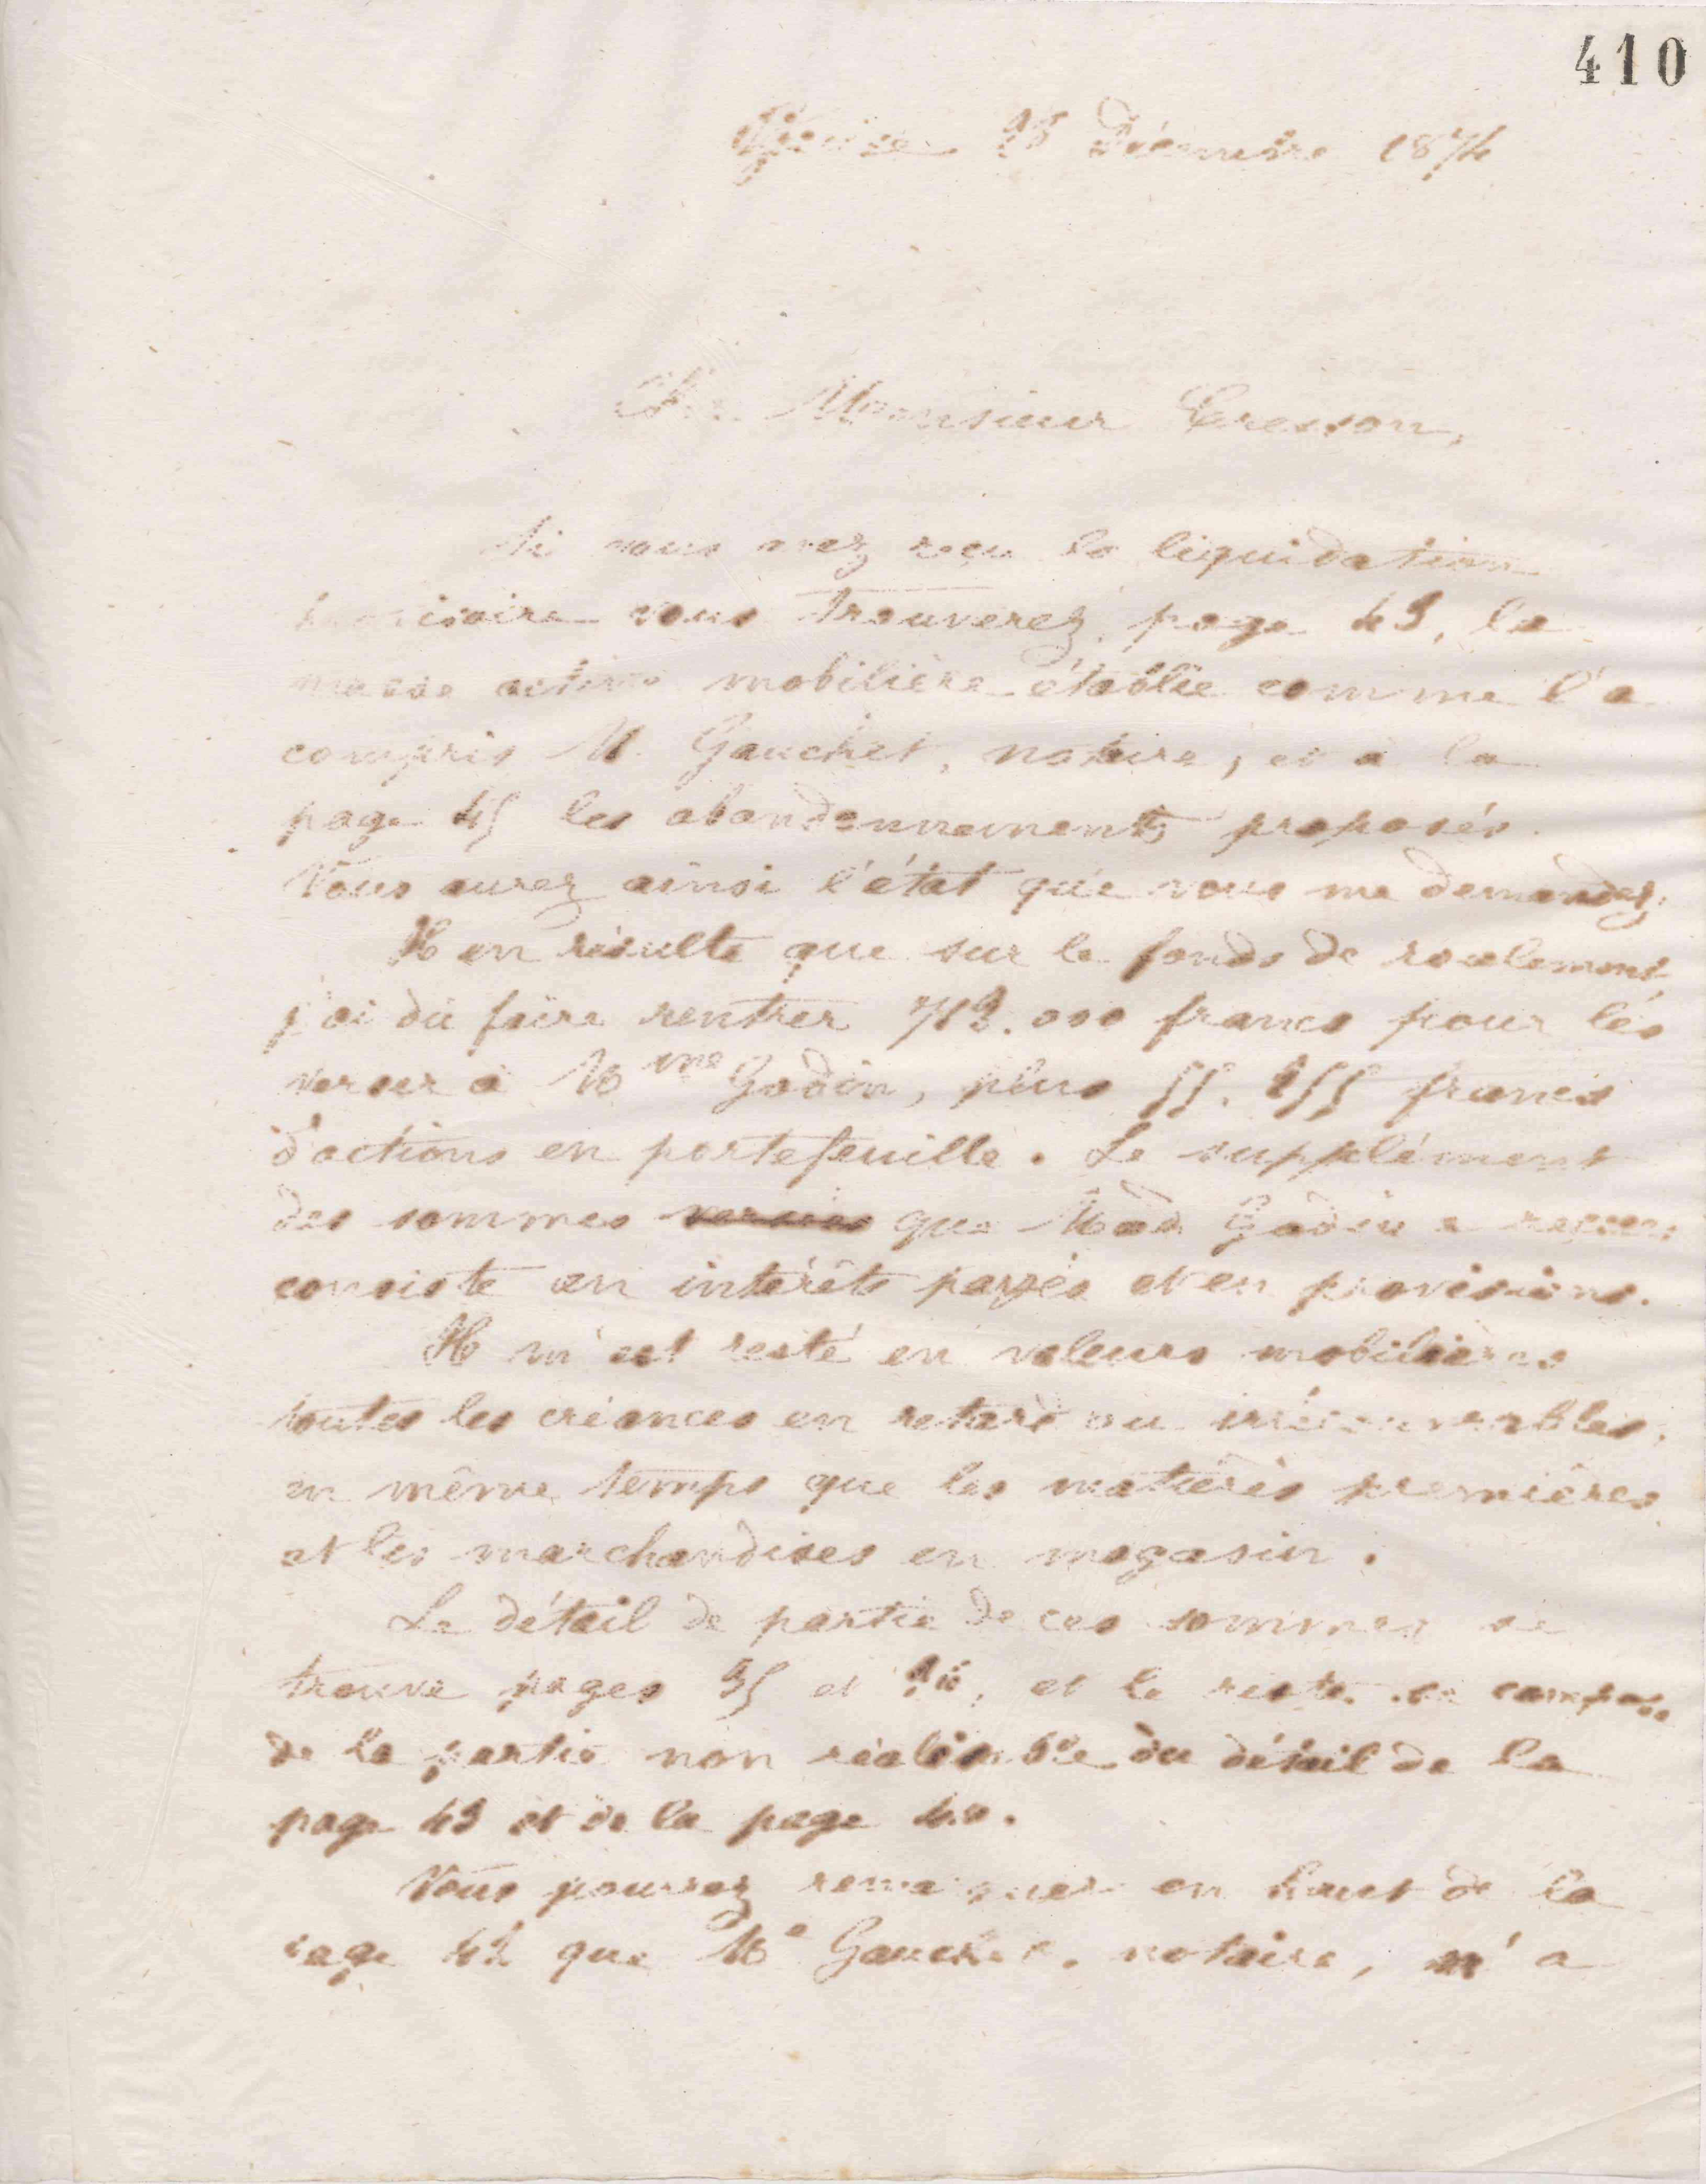 410
décembre 1874
Monsieur Cresson,
Si vous avez reçu la liquidation
vous trouverez, page 43, la
masse active mobilière établie comme l'a
compris M. Gauchet, notaire, et à la
page 45 les abandonnements proposés.
Vous aurez ainsi l'état que vous me demandez.
Il en résulte que sur le fonds de roulement
j'ai dû faire rentrer 713.000 francs pour les
verser à Mme Godin, plus francs
d'actions en portefeuille. Le supplément
des sommes versées que Made Godin a reçues
consiste en intérêts payés et en provisions.
Il m'est resté en valeurs mobilières
toutes les créances en retard ou irrécouvrables,
en même temps que les matières premières
et les marchandises en magasin.
Le détail de partie de ces sommes se
trouve pages 35 et et le reste se compose
de la partie non réalisable du détail de la
page 43 et de la page
Vous pourrez remarquer en haut de la
page 42 que Me Gauchet, notaire, m'a